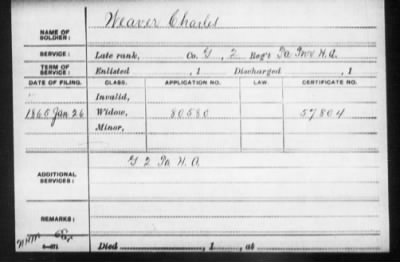 Weaver Charles
NAME OF SOLDIER:
SERVICE: Late rank, Co. G, 2 Reg't Pa Prov H.A.
TERM OF SERVICE: Enlisted , 1 Discharged , 1
DATE OF FILING. CLASS. APPLICATION NO. LAW. CERTIFICATE NO.
Invalid,
1865 Jan 26 Widow, 80580 57804
Minor,
G 2 Pa H.A.
ADDITIONAL SERVICES:
REMARKS:
Died , 1 , at